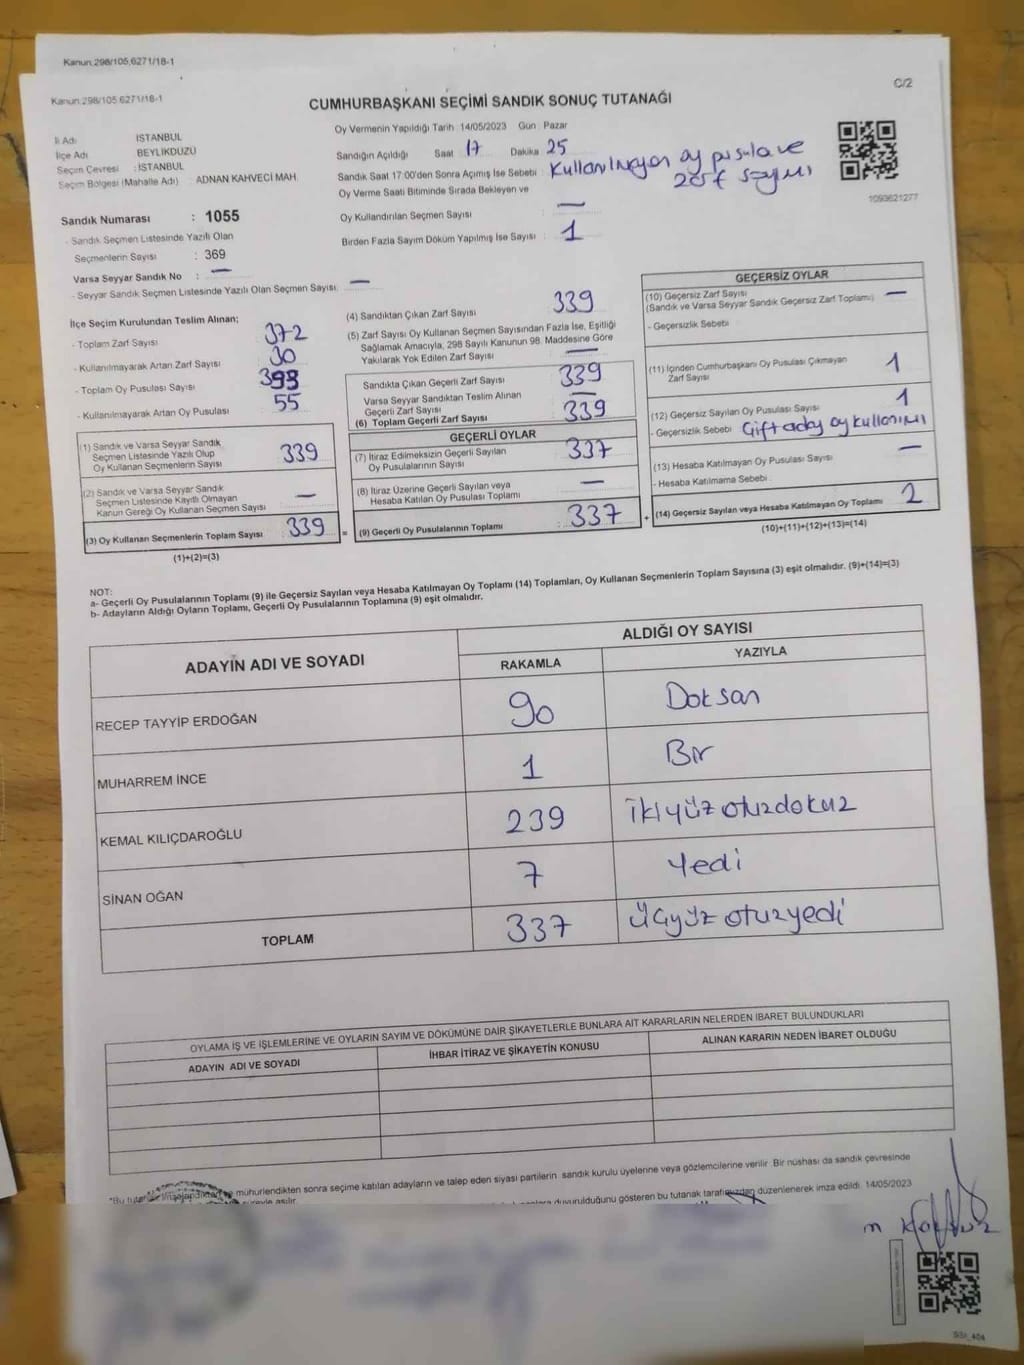 Kanun:298/105,6271/18-1
Kanun:298/105,6271/18-1
C/2
CUMHURBAŞKANI SEÇİMİ SANDIK SONUÇ TUTANAĞI
İl Adı : İSTANBUL
İlçe Adı : BEYLİKDÜZÜ
Seçim Çevresi : İSTANBUL
Seçim Bölgesi (Mahalle Adı) : ADNAN KAHVECİ MAH.
Sandık Numarası : 1055
- Sandık Seçmen Listesinde Yazılı Olan
Seçmenlerin Sayısı : 369
Varsa Seyyar Sandık No : —
- Seyyar Sandık Seçmen Listesinde Yazılı Olan Seçmen Sayısı: —
Oy Vermenin Yapıldığı Tarih :14/05/2023 Gün : Pazar
Sandığın Açıldığı Saat 17 Dakika 25
Sandık Saat 17:00'den Sonra Açımış İse Sebebi : Kullanılmayan oy pusula ve
zarf sayımı
Oy Verme Saati Bitiminde Sırada Bekleyen ve
Oy Kullandırılan Seçmen Sayısı : —
Birden Fazla Sayım Döküm Yapılmış İse Sayısı : 1
1093621277
İlçe Seçim Kurulundan Teslim Alınan;
- Toplam Zarf Sayısı : 372
- Kullanılmayarak Artan Zarf Sayısı : 30
- Toplam Oy Pusulası Sayısı : 393
- Kullanılmayarak Artan Oy Pusulası : 55
(1) Sandık ve Varsa Seyyar Sandık
Seçmen Listesinde Yazılı Olup
Oy Kullanan Seçmenlerin Sayısı : 339
(2) Sandık ve Varsa Seyyar Sandık
Seçmen Listesinde Kayıtlı Olmayan
Kanun Gereği Oy Kullanan Seçmen Sayısı : —
(3) Oy Kullanan Seçmenlerin Toplam Sayısı : 339
(1)+(2)=(3)
(4) Sandıktan Çıkan Zarf Sayısı : 339
(5) Zarf Sayısı Oy Kullanan Seçmen Sayısından Fazla İse, Eşitliği
Sağlamak Amacıyla, 298 Sayılı Kanunun 98. Maddesine Göre
Yakılarak Yok Edilen Zarf Sayısı : —
Sandıkta Çıkan Geçerli Zarf Sayısı : 339
Varsa Seyyar Sandıktan Teslim Alınan
Geçerli Zarf Sayısı : —
(6) Toplam Geçerli Zarf Sayısı : 339
GEÇERLİ OYLAR
(7) İtiraz Edilmeksizin Geçerli Sayılan
Oy Pusulalarının Sayısı : 337
(8) İtiraz Üzerine Geçerli Sayılan veya
Hesaba Katılan Oy Pusulası Toplamı : —
= (9) Geçerli Oy Pusulalarının Toplamı : 337
GEÇERSİZ OYLAR
(10) Geçersiz Zarf Sayısı
(Sandık ve Varsa Seyyar Sandık Geçersiz Zarf Toplamı) : —
- Geçersizlik Sebebi
(11) İçinden Cumhurbaşkanı Oy Pusulası Çıkmayan
Zarf Sayısı : 1
(12) Geçersiz Sayılan Oy Pusulası Sayısı : 1
- Geçersizlik Sebebi Çift aday oy kullanımı
(13) Hesaba Katılmayan Oy Pusulası Sayısı : —
- Hesaba Katılmama Sebebi :
+ (14) Geçersiz Sayılan veya Hesaba Katılmayan Oy Toplamı 2
(10)+(11)+(12)+(13)=(14)
NOT:
a- Geçerli Oy Pusulalarının Toplamı (9) ile Geçersiz Sayılan veya Hesaba Katılmayan Oy Toplamı (14) Toplamları, Oy Kullanan Seçmenlerin Toplam Sayısına (3) eşit olmalıdır. (9)+(14)=(3)
b- Adayların Aldığı Oyların Toplamı, Geçerli Oy Pusulalarının Toplamına (9) eşit olmalıdır.
ADAYIN ADI VE SOYADI
ALDIĞI OY SAYISI
RAKAMLA YAZIYLA
RECEP TAYYİP ERDOĞAN 90 Doksan
MUHARREM İNCE 1 Bir
KEMAL KILIÇDAROĞLU 239 ikiyüz otuzdokuz
SİNAN OĞAN 7 Yedi
TOPLAM 337 üçyüz otuzyedi
OYLAMA İŞ VE İŞLEMLERİNE VE OYLARIN SAYIM VE DÖKÜMÜNE DAİR ŞİKAYETLERLE BUNLARA AİT KARARLARIN NELERDEN İBARET BULUNDUKLARI
ADAYIN ADI VE SOYADI İHBAR İTİRAZ VE ŞİKAYETİN KONUSU ALINAN KARARIN NEDEN İBARET OLDUĞU
*Bu mühürlendikten sonra seçime katılan adayların ve talep eden siyasi partilerin sandık kurulu üyelerine veya gözlemcilerine verilir. Bir nüshası da sandık çevresinde
duyurulduğunu gösteren bu tutanak tarafımızdan düzenlenerek imza edildi. 14/05/2023